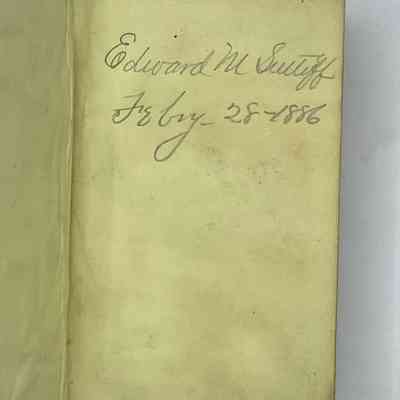 Edward M Sutliff
Febry - 28 - 1886